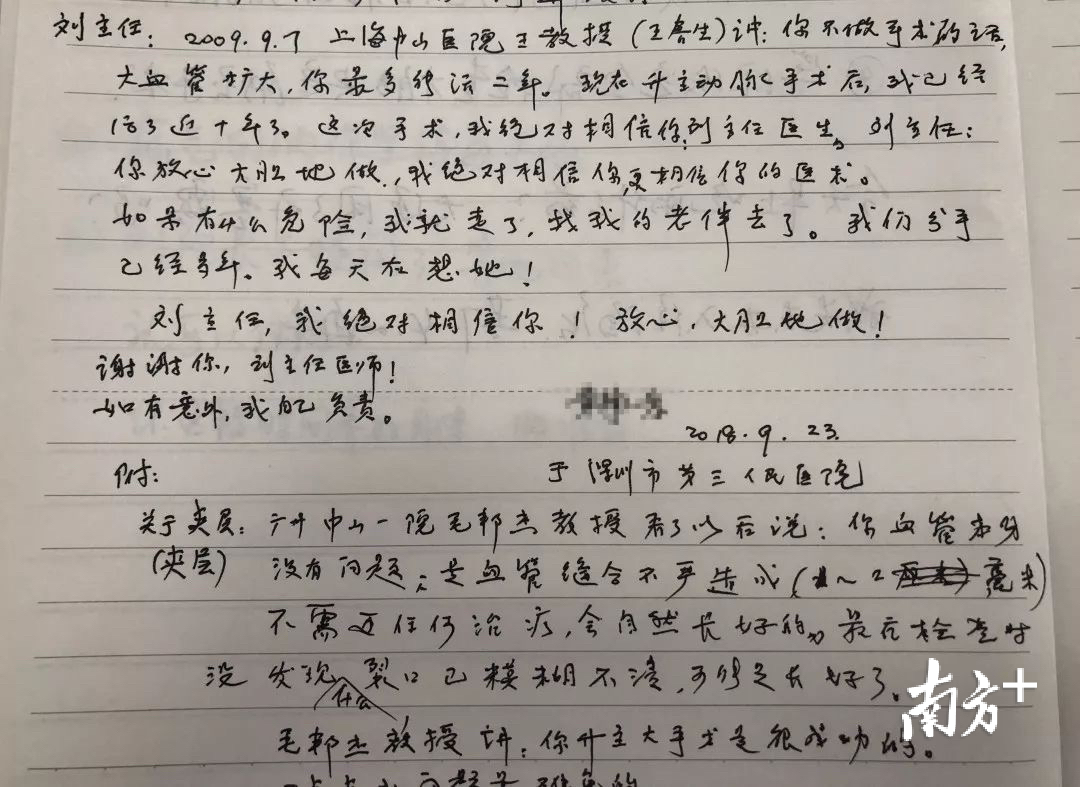 刘主任：2009.9.7 上海中山医院王教授（王春生）讲：你不做手术的话，
大血管扩大，你最多能活二年。现在升主动脉手术后，我已经
活了近十年了。这次手术，我绝对相信你刘主任医生。刘主任：
你放心大胆地做，我绝对相信你，更相信你的医术。
如果有什么危险，我就走了，找我的老伴去了。我们分手
已经多年。我每天在想她！
刘主任，我绝对相信你！放心，大胆地做！
谢谢你，刘主任医师！
如有意外，我自己负责。
2018.9.23.
附：
于深圳市第三人民医院
关于夹层：广州中山一院毛郭杰教授看了以后说：你血管本身
(夹层) 没有问题；是血管缝合不严造成（1～2毫米）
不需要任何治疗，会自然长好的，最后检查时
没发现什么裂口已模糊不清，可能是长好了。
教授讲：你升主大手术是很成功的。
南方+